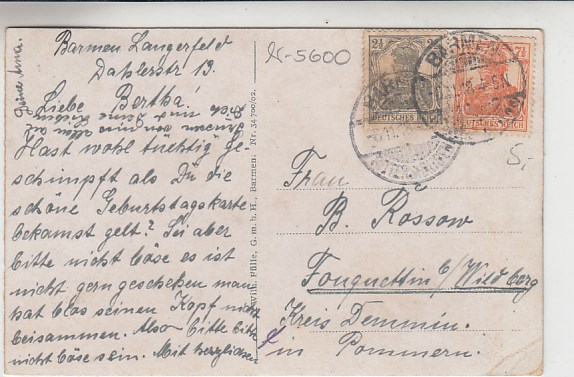 Barmen Langerfeld
Dahlerstr 13.
Liebe Bertha!
Hast wohl tüchtig ge-
schimpft als Du die
schöne Geburtstagskarte
bekamst gelt? Sei aber
bitte nicht böse es ist
nicht gern geschehen man
hat blos seinen Kopf nicht
beisammen. Also bitte bitte
nicht böse sein. Mit herzlichen
Deine Anna.
Wilh. Fülle, G. m. b. H., Barmen. Nr. 34700/02.
5600
2½
7½
DEUTSCHES REICH
DEUTSCHES REICH
BARMEN
5,-
Frau
B. Rossow
Fouquettin b/Wildberg
Kreis Demmin.
in Pommern.